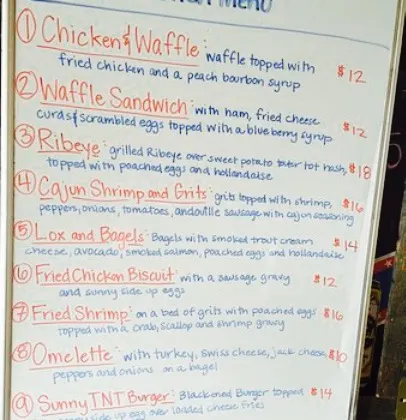 MENU
① Chicken & Waffle: waffle topped with $12
fried chicken and a peach bourbon syrup
② Waffle Sandwich: with ham, fried cheese $12
curds & scrambled eggs topped with a blueberry syrup
③ Ribeye: grilled Ribeye over sweet potato tater tot hash, $18
topped with poached eggs and hollandaise
④ Cajun Shrimp and Grits: grits topped with shrimp, $16
peppers, onions, tomatoes, andouille sausage with cajun seasoning
⑤ Lox and Bagels: Bagels with smoked trout cream $14
cheese, avocado, smoked salmon, poached eggs and hollandaise
⑥ Fried Chicken Biscuit: with a sausage gravy $12
and sunny side up eggs
⑦ Fried Shrimp: on a bed of grits with poached eggs $16
topped with a crab, scallop and shrimp gravy
⑧ Omelette: with turkey, swiss cheese, jack cheese, $10
peppers and onions on a bagel
⑨ Sunny TNT Burger: Blackened Burger topped $14
side up egg over loaded cheese fries